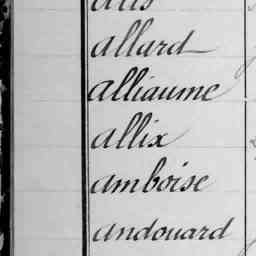 allard
alliaume
allix
amboise
andouard